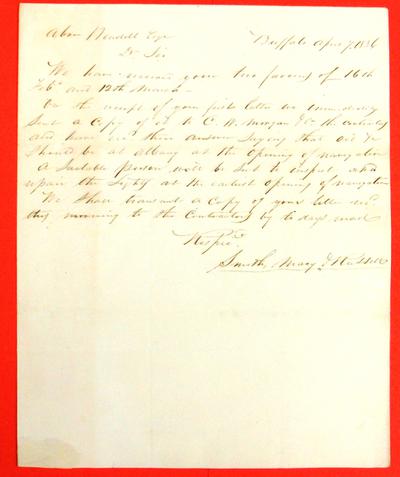 Abm Wendell Esqr Buffalo Apr 7, 1836
Dr Sir
We have received your two favors of 16th
Feby and 12th March
On the receipt of your first letter we immediately
sent a Copy of it to C. W. Morgan & Co the contractors
and have recd their answer saying that oil &c
should be at Albany at the opening of navigation
A suitable person will be sent to inspect and
repair the Lights at the earliest opening of navigation
We shall transmit a Copy of your letter recd
this morning to the Contractors by to days mail
Respec
Smith, Macy &